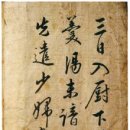 三日入厨下
羹湯未諳
先遣少婦